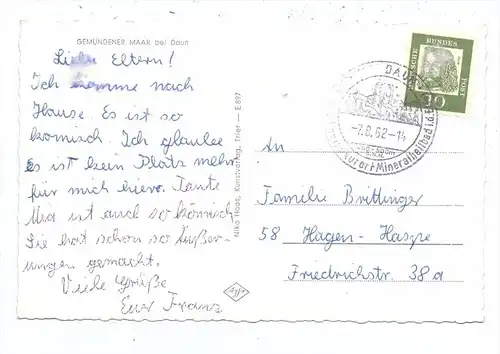 GEMÜNDENER MAAR bei Daun
Liebe Eltern!
Ich komme nach
Hause. Es ist so
komisch. Ich glaube
es ist kein Platz mehr
für mich hier. Tante
Mia ist auch so komisch
Sie hat schon so Äußer-
ungen gemacht.
Viele Grüße
Euer Franz
Mika Haag, Kunstverlag, Trier — E 897
An
Familie Brittinger
58 Hagen-Haspe
Friedrichstr. 38a
DEUTSCHE BUNDESPOST
10
DAUN
-7.8.62-14
Kurort-Mineralheilbad i.d. Eifel